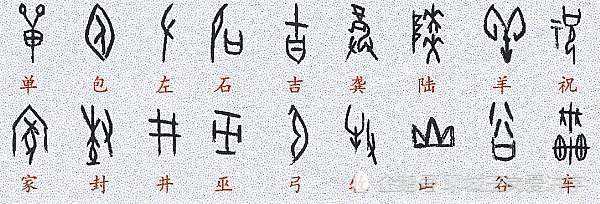 单 包 左 石 吉 龚 陆 羊 祝
家 封 井 巫 弓 山 谷 车